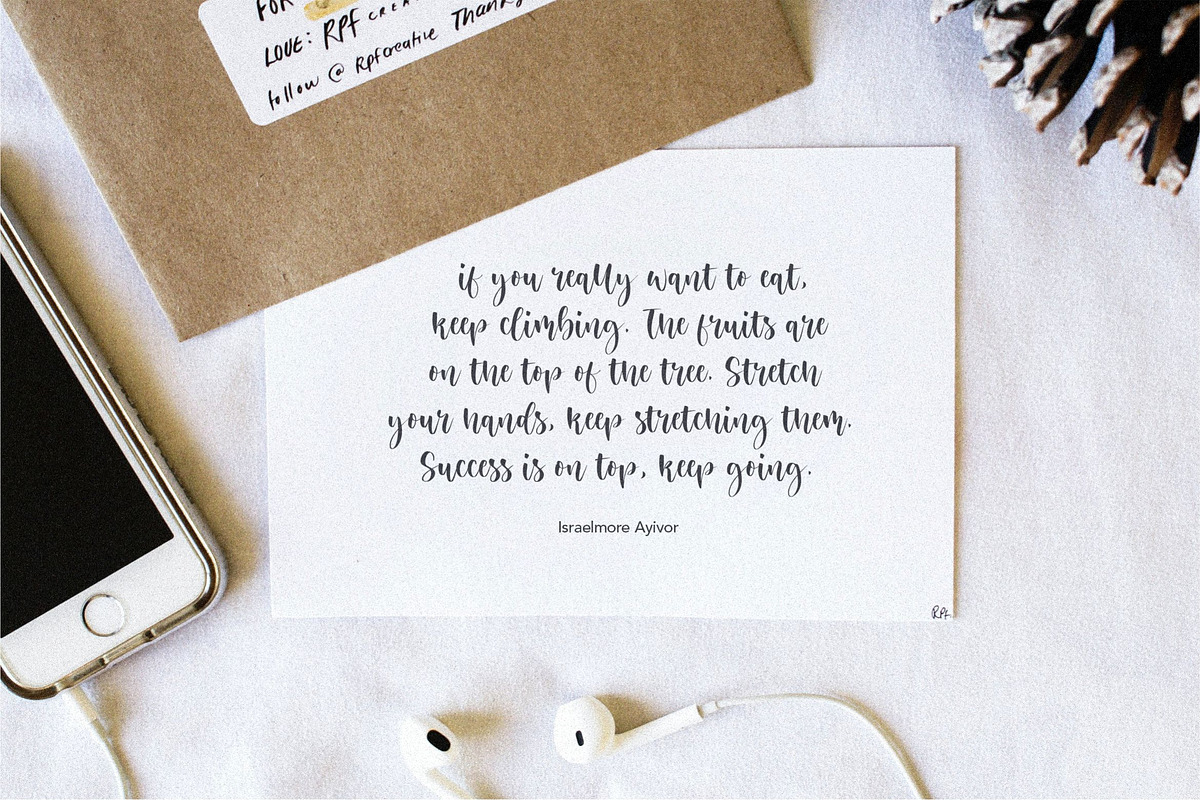 FOR
LOVE: RPF CREA
follow @ Rpfcreative Thank
if you really want to eat,
keep climbing. The fruits are
on the top of the tree. Stretch
your hands, keep stretching them.
Success is on top, keep going.
Israelmore Ayivor
RPF